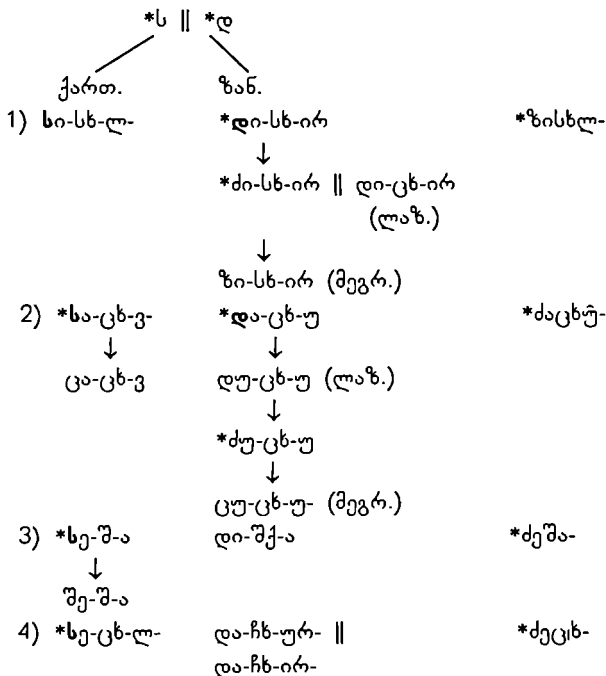 *ს || *დ
ქართ. ზან.
1) სი-სხ-ლ- *დი-სხ-ირ *ზისხლ-
↓
*ძი-სხ-ირ || დი-ცხ-ირ
(ლაზ.)
↓
ზი-სხ-ირ (მეგრ.)
2) *სა-ცხ-ვ- *და-ცხ-უ *ძაცხუ̂-
↓ ↓
ცა-ცხ-ვ დუ-ცხ-უ (ლაზ.)
↓
*ძუ-ცხ-უ
↓
ცუ-ცხ-უ- (მეგრ.)
3) *სე-შ-ა დი-შქ-ა *ძეშა-
↓
შე-შ-ა
4) *სე-ცხ-ლ- და-ჩხ-ურ- || *ძეცხ-
და-ჩხ-ირ-